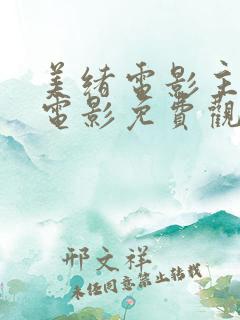 美緒電影主
電影免費觀
邢文祥
未经同意禁止转载